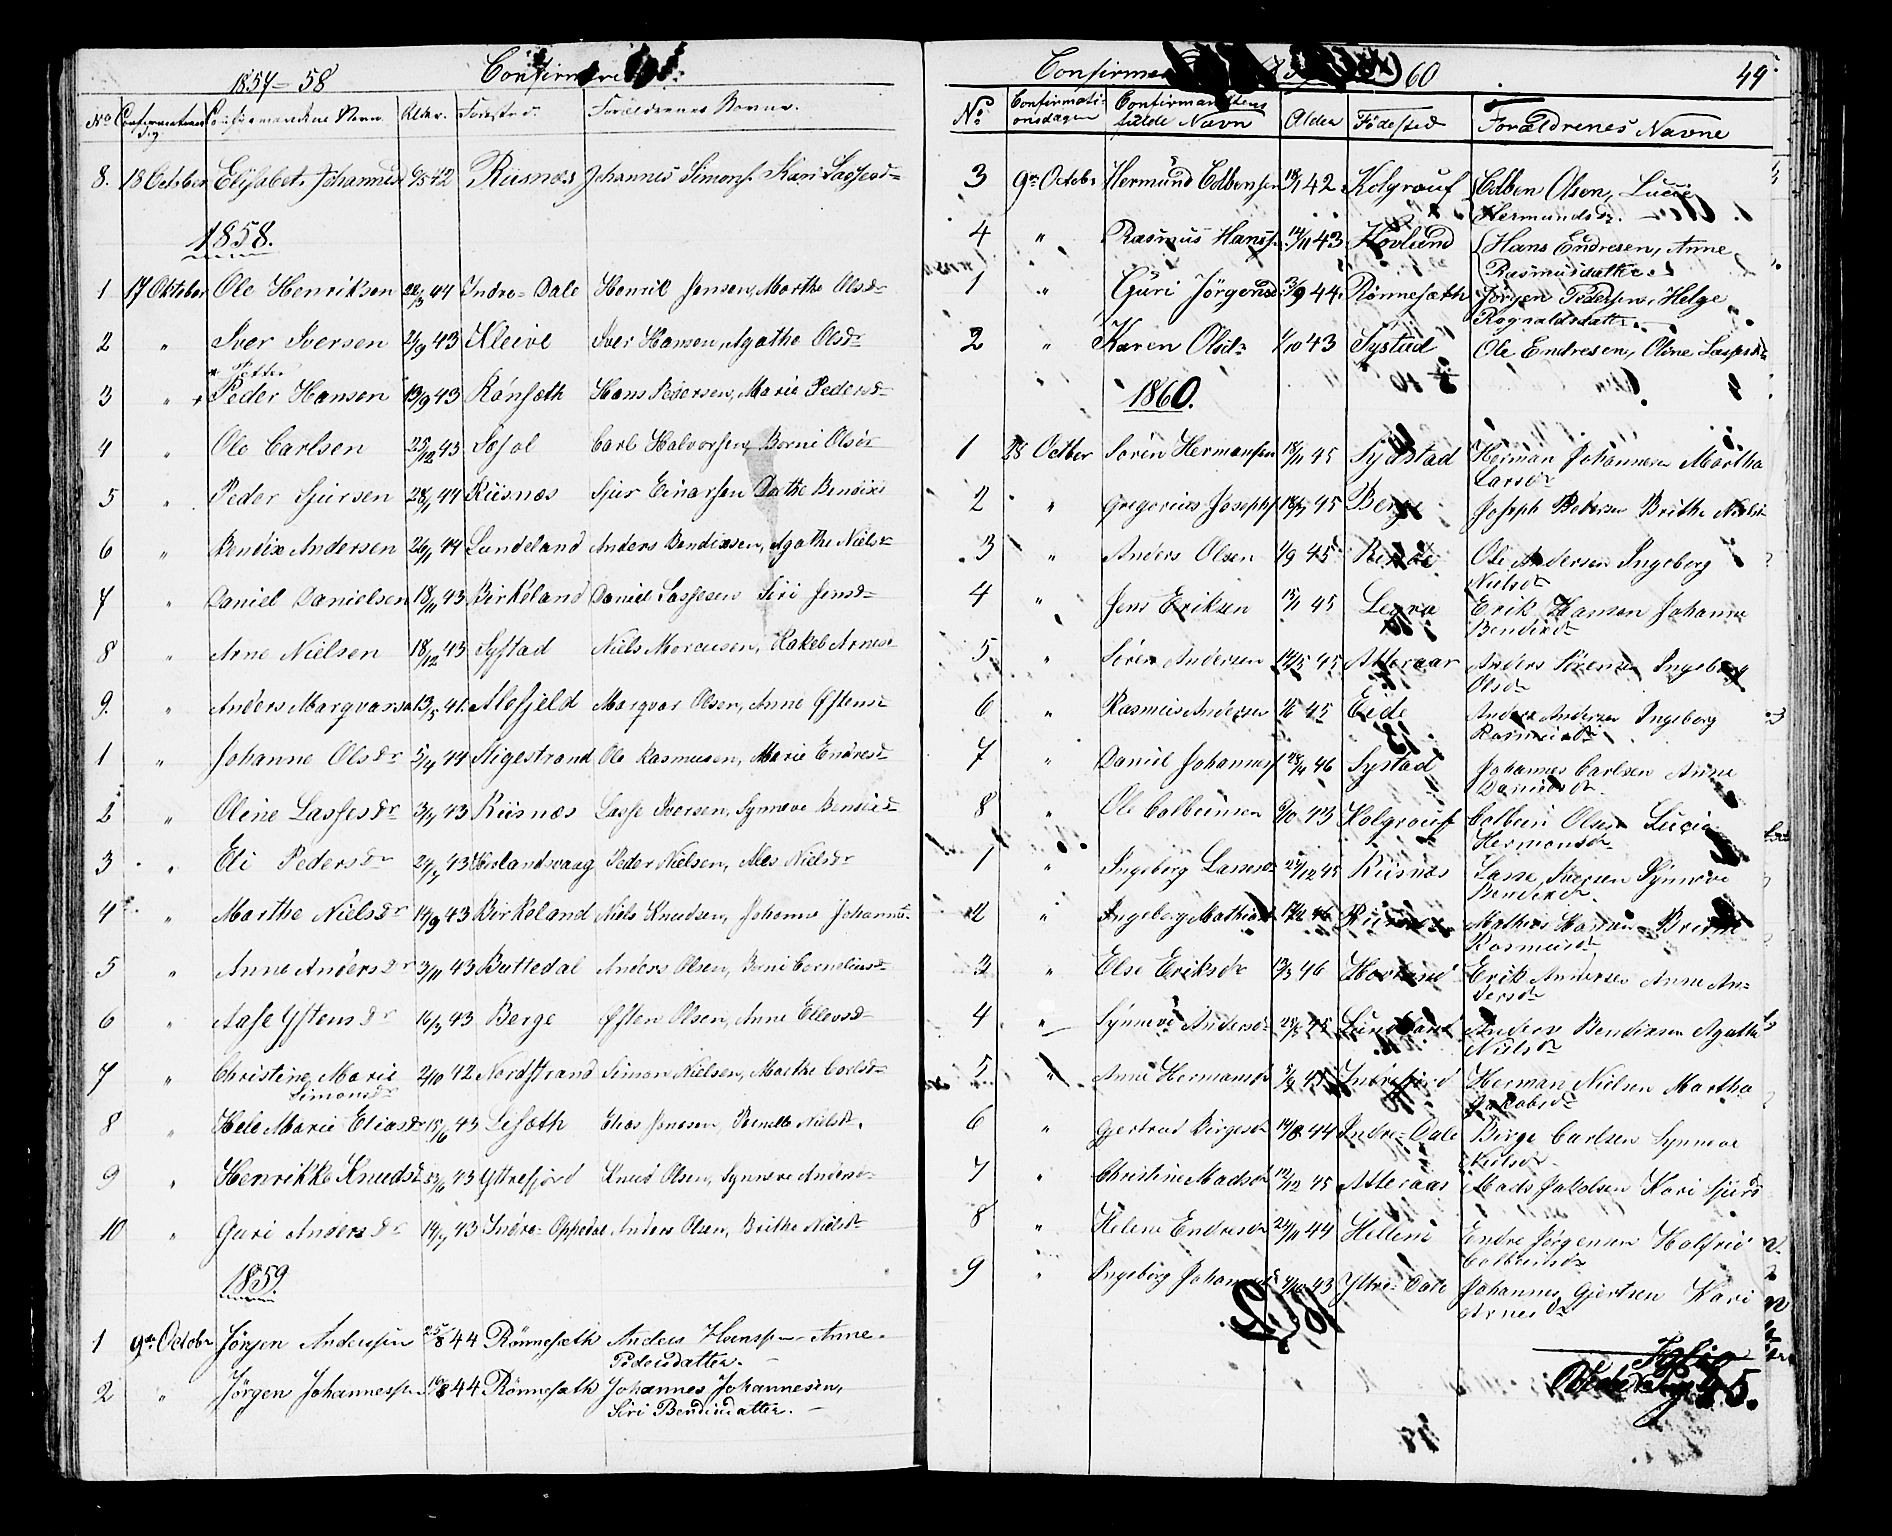 1857-58
Confirmerede
No Confirmationens Dag Confirmandens Navn. Alder. Fødested. Forældrenes Navne.
8. 18 October Elisabet Johannesd 6/5 42 Riisnæs Johannes Simons. Kari Lassesdr
1858.
1 17 Oktober Ole Henriksen 44 Indre-Dale Henrik Jensen, Marthe Olsdr
2 " Iver Iversen 2/9 43 Kleive Iver Hansen, Agathe Olsdr
Petter
3 " + Peder Hansen 13/9 43 Rönsæth Hans Pedersen, Marie Pedersdr
4 " Ole Carlsen 25/12 43 Søsol Carl Halvorsen, Borni Olsdr
5 " Peder Sjursen 28/1 44 Riisnæs Sjur Einarsen Dorthe Bendixd
6 " Bendix Andersen 26/1 44 Lundeland Anders Bendixsen, Agathe Nielsdr
7 " Daniel Danielsen 18/11 43 Birkeland Daniel Lassesen Siri Jensdr
8 " Arne Nielsen 18/12 43 Systad Niels Marcusen, Rakel Arnesdr
9. " Anders Marqvarsen 13/5 41. Alefjeld Marqvar Olsen, Anne Østensdr
1 " Johanne Olsdr 5/4 44 Stigestrand Ole Rasmusen, Marie Endresdr
2 " Oline Lassesdr 3/4 43 Riisnæs Lasse Iversen, Synneve Bendixdr
3 " Eli Pedersdr 24/4 43 Hovlandsvaag Peder Nielsen, Ales Nielsdr
4 " Marthe Nielsdr 14/9 43 Birkeland Niels Knudsen, Johanne Johannesd
5 " Anne Andersdr 3/11 43 Buttedal Anders Olsen, Borni Corneliusdr
6 " Aase Ystensdr 16/3 43 Berge Østen Olsen, Anne Ellevsdr
7 " Christine Marie 2/10 42 Nordstrand Simon Nielsen, Marthe Carlsdr
Simonsdr
8 " Hele Marie Eliasdr 15/6 43 Lisæth Elias Jonesen, Pernille Nielsdr.
9 " Henrikke Knudsdr 43 Yttrefjord Knud Olsen, Synneve Andersdr
10 " Guri Andersdr 14/7 43 Indre-Oppedal Anders Olsen, Brithe Nielsdr
1859.
1 9de October Jörgen Anderssen 25/8 44 Rönnesæth Anders Hanssen Anne
Pedersdatter.
2 " Jörgen Johannessen 10/8 44 Rönnesæth Johannes Johannesen,
Siri Bendixdatter.
Confirmerede 60 49
No. Confirmationsdagen Confirmandens fulde Navn Alder Födested Forældrenes Navne
3 9de Octobr Hermund Colbensen 18/1 42 Kolgrouf Colben Olsen, Lucie
Hermundsdr.
4 " Rasmus Hanss. 14/11 43 Hovland Hans Endresen, Anne
Rasmusdatter.
1 " Guri Jörgensd 3/9 44 Rönnesæth Jörgen Pedersen, Helge
Rognaldsdatter.
2 " Karen Olsdr 1/10 43 Systad Ole Endresen, Oline Lassesdr
1860.
1 28 Octber Sören Hermansen 18/11 45 Sydstad Herman Johannesen Martha
Larsdr
2 " Gregorius Josephs 45 Berge Joseph Pedersen Brithe Nielsdr
3 " Anders Olsen 1/9 45 Ole Andersen Ingeborg
Nielsdr
4 " Jens Eriksen 13/1 45 Erik Hansen Johanne
Bendixdr
5 " Sören Andersen 14/5 45 Atteraar Anders Sørensen Ingeborg
Olsdr
6 " Rasmus Andersen 45 Eide Anders Andersen Ingeborg
Rasmusdr
7 " Daniel Johanness 46 Systad Johannes Carlsen Anne
Danielsdr.
8 " Ole Colbeinsen 43 Kolgrouf Colbein Olsen Lucie
Hermansdr
1 " Ingeborg Lassesdr 24/12 45 Riisnæs Lasse Iversen Synneve
Bendixdr
2 " Ingeborg Mathiasd 46 Riisnæs Mathias Hansen
Rasmusdr
3 " Else Eriksdr 13/3 46 Hovland Erik Andersen Anne An-
dersdr
4 " Synneve Andersdr 45 Lundeland Anders Bendixsen Agathe
Nielsdr
5 " Anne Hermansdr Indrefjord Herman Nielsen Martha
Jakobsdr
6 " Gertrud Birgesdr 14/8 44 Indre-Dale Birge Carlsen Synneve
Nielsdr
7 " Christine Madsdr 12/12 45 Atteraar Mads Jakobsen Kari Sjursd
8 " Helene Endresdr 24/11 44 Hellem Endre Jörgensen Halfrid
Colbeinsdr
9 " Ingeborg Johannesd 43 Yttre-Dale Johannes Gjertsen Kari
Arnesdr